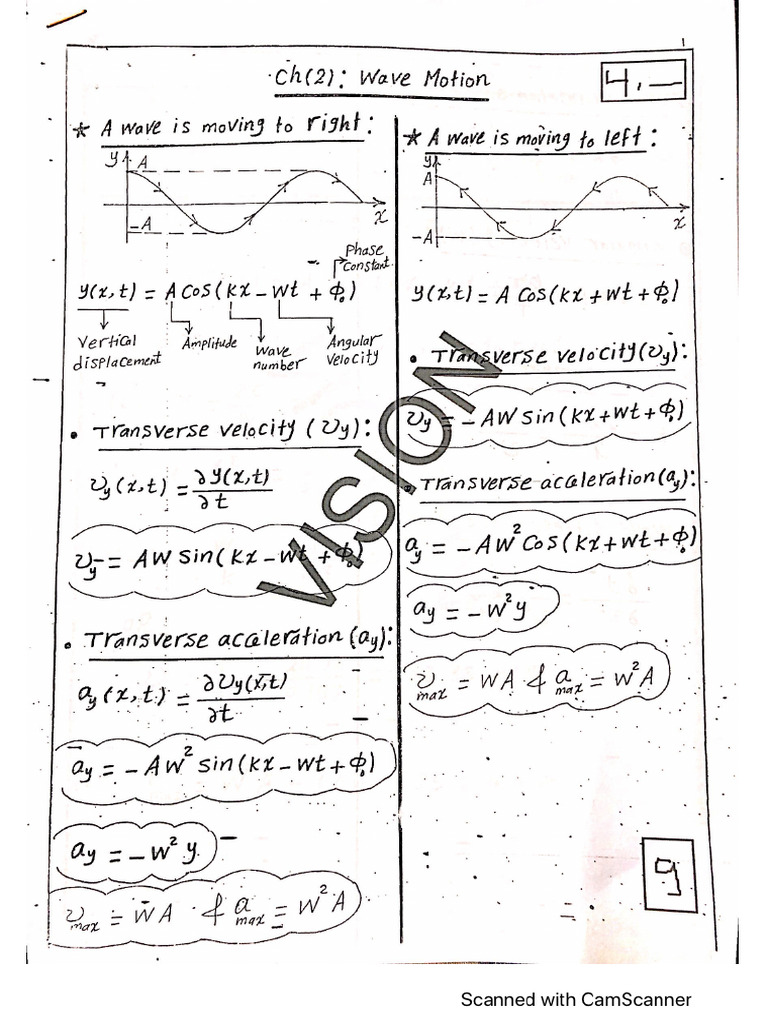 Ch(2): Wave Motion
4. —
* A wave is moving to right:
y
A
-A
x
Phase
constant
y(x,t) = A Cos(kx - wt + φ₀)
Vertical
displacement
Amplitude
Wave
number
Angular
Velocity
• Transverse velocity (υy):
υy(x,t) = ∂y(x,t)
∂t
υy = AW Sin(kx - wt + φ₀)
• Transverse acceleration (ay):
ay(x,t) = ∂υy(x,t)
∂t
ay = -AW² sin(kx - wt + φ₀)
ay = -W² y
υmax = WA & amax = W²A
* A wave is moving to left:
y
A
-A
x
y(x,t) = A Cos(kx + wt + φ₀)
• Transverse velocity (υy):
υy = -AW Sin(kx + wt + φ₀)
• Transverse acceleration (ay):
ay = -AW² Cos(kx + wt + φ₀)
ay = -W² y
υmax = WA & amax = W²A
VISION
9
Scanned with CamScanner